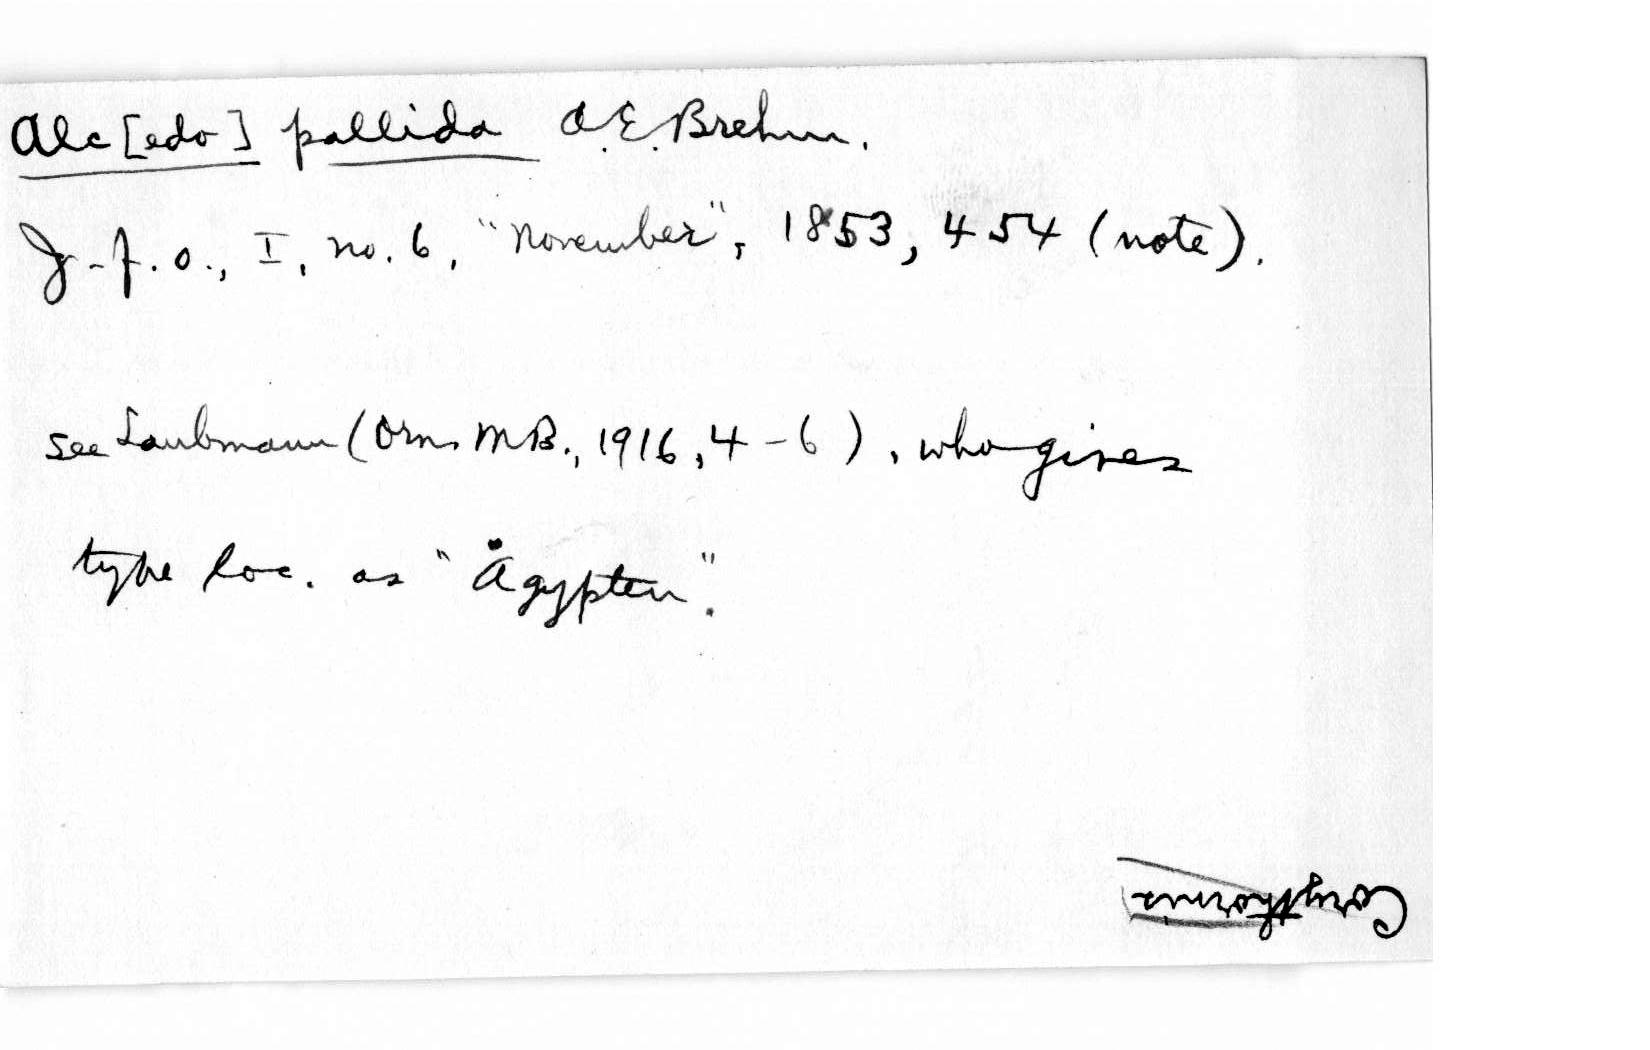 Alc[edo] pallida A.E. Brehm.
J.f.O., I, no. 6, "November", 1853, 454 (note).
see Laubmann (Orn. MB., 1916, 4-6), who gives
type loc. as "Ägypten".
Corythornis